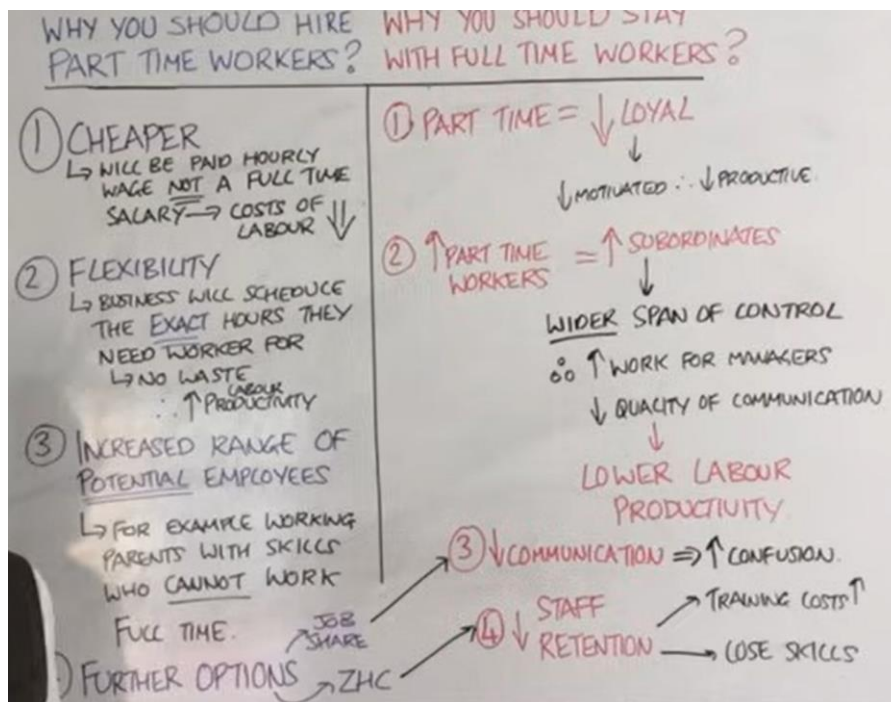 WHY YOU SHOULD HIRE
PART TIME WORKERS?
① CHEAPER
↳ WILL BE PAID HOURLY
WAGE NOT A FULL TIME
SALARY → COSTS OF
LABOUR ⇓
② FLEXIBILITY
↳ BUSINESS WILL SCHEDULE
THE EXACT HOURS THEY
NEED WORKER FOR
↳ NO WASTE
∴ ↑ LABOUR PRODUCTIVITY
③ INCREASED RANGE OF
POTENTIAL EMPLOYEES
↳ FOR EXAMPLE WORKING
PARENTS WITH SKILLS
WHO CANNOT WORK
FULL TIME.
FURTHER OPTIONS
↗ JOB
SHARE
→ ZHC
WHY YOU SHOULD STAY
WITH FULL TIME WORKERS?
① PART TIME = ↓ LOYAL
↓
↓ MOTIVATED ∴ ↓ PRODUCTIVE.
② ↑ PART TIME
WORKERS = ↑ SUBORDINATES
↓
WIDER SPAN OF CONTROL
∴ ↑ WORK FOR MANAGERS
↓ QUALITY OF COMMUNICATION
↓
LOWER LABOUR
PRODUCTIVITY
③ ↓ COMMUNICATION ⇒ ↑ CONFUSION.
④ ↓ STAFF
RETENTION
↗ TRAINING COSTS ↑
→ LOSE SKILLS